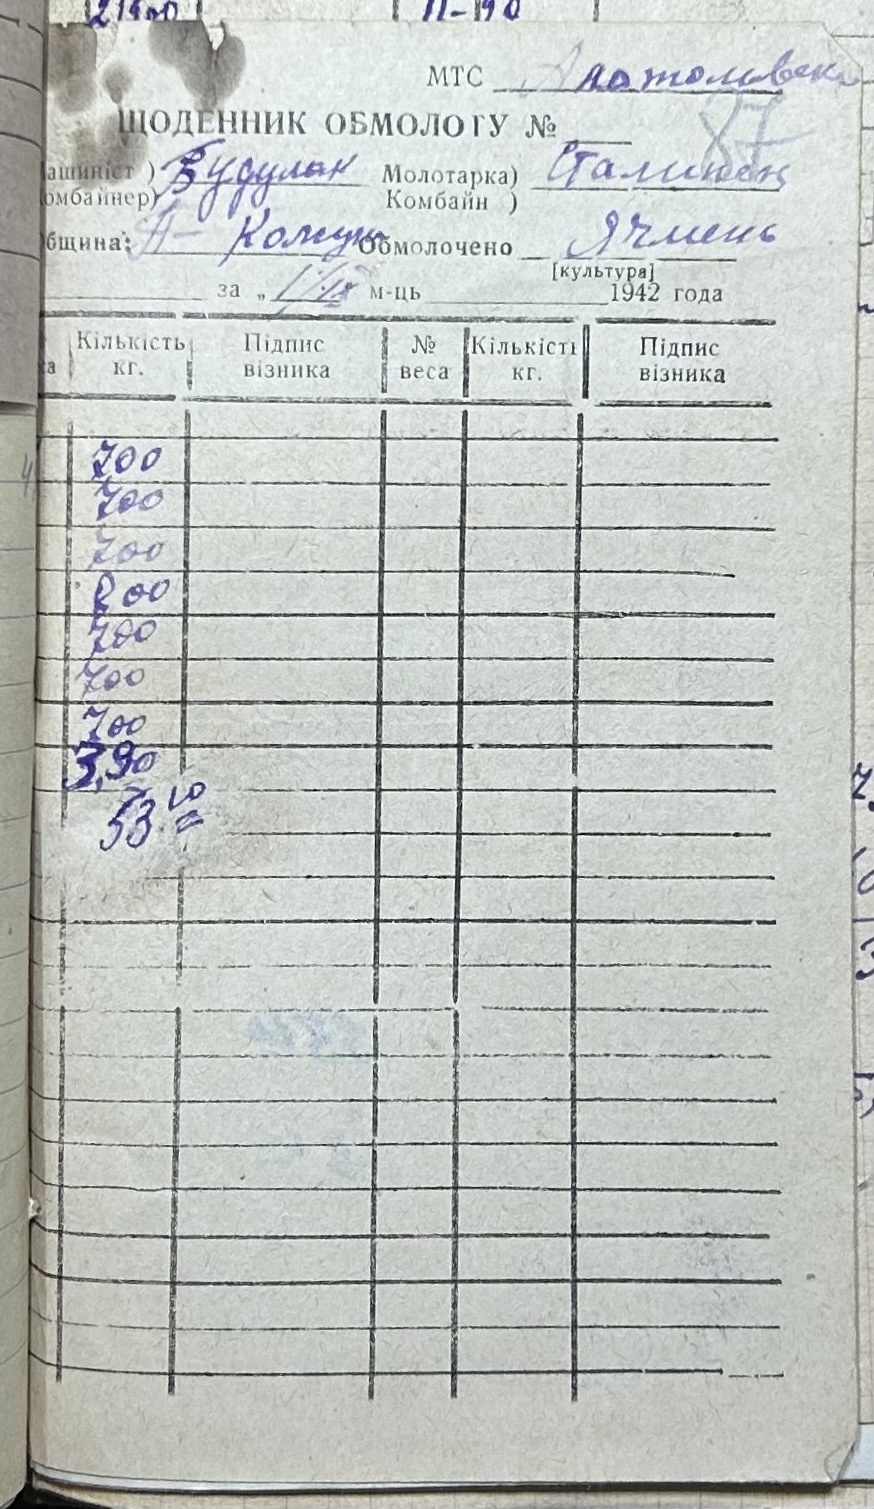 21900 11-190
МТС Анатольевск
ЩОДЕННИК ОБМОЛОГУ №
87
ашиніст ) Будулак Молотарка) Сталинец
омбайнер) Комбайн )
бщина: А- Кожух Обмолочено Ячмень
[культура]
за „ 1/ІХ м-ць 1942 года
Кількість кг. Підпис візника № веса Кількість кг. Підпис візника
700
700
700
800
700
700
700
3,90
53 10